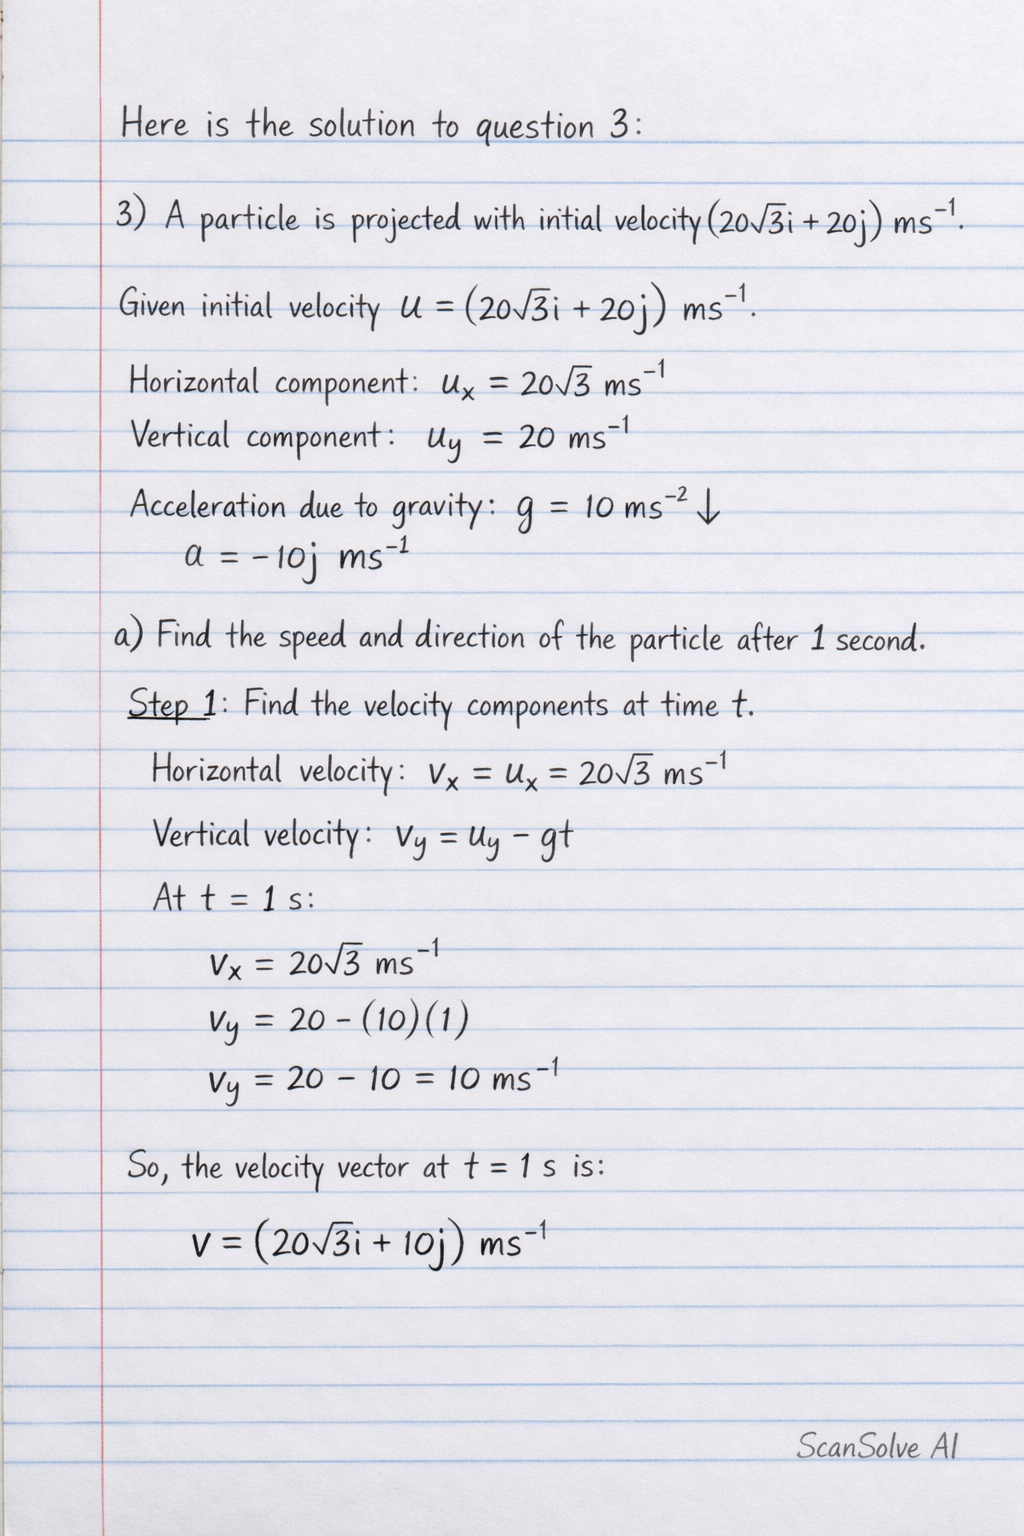 Here is the solution to question 3:
3) A particle is projected with intial velocity (20√3i + 20j) ms⁻¹.
Given initial velocity u = (20√3i + 20j) ms⁻¹.
Horizontal component: uₓ = 20√3 ms⁻¹
Vertical component: u_y = 20 ms⁻¹
Acceleration due to gravity: g = 10 ms⁻² ↓
a = -10j ms⁻¹
a) Find the speed and direction of the particle after 1 second.
Step 1: Find the velocity components at time t.
Horizontal velocity: vₓ = uₓ = 20√3 ms⁻¹
Vertical velocity: v_y = u_y - gt
At t = 1 s:
vₓ = 20√3 ms⁻¹
v_y = 20 - (10)(1)
v_y = 20 - 10 = 10 ms⁻¹
So, the velocity vector at t = 1 s is:
v = (20√3i + 10j) ms⁻¹
ScanSolve AI